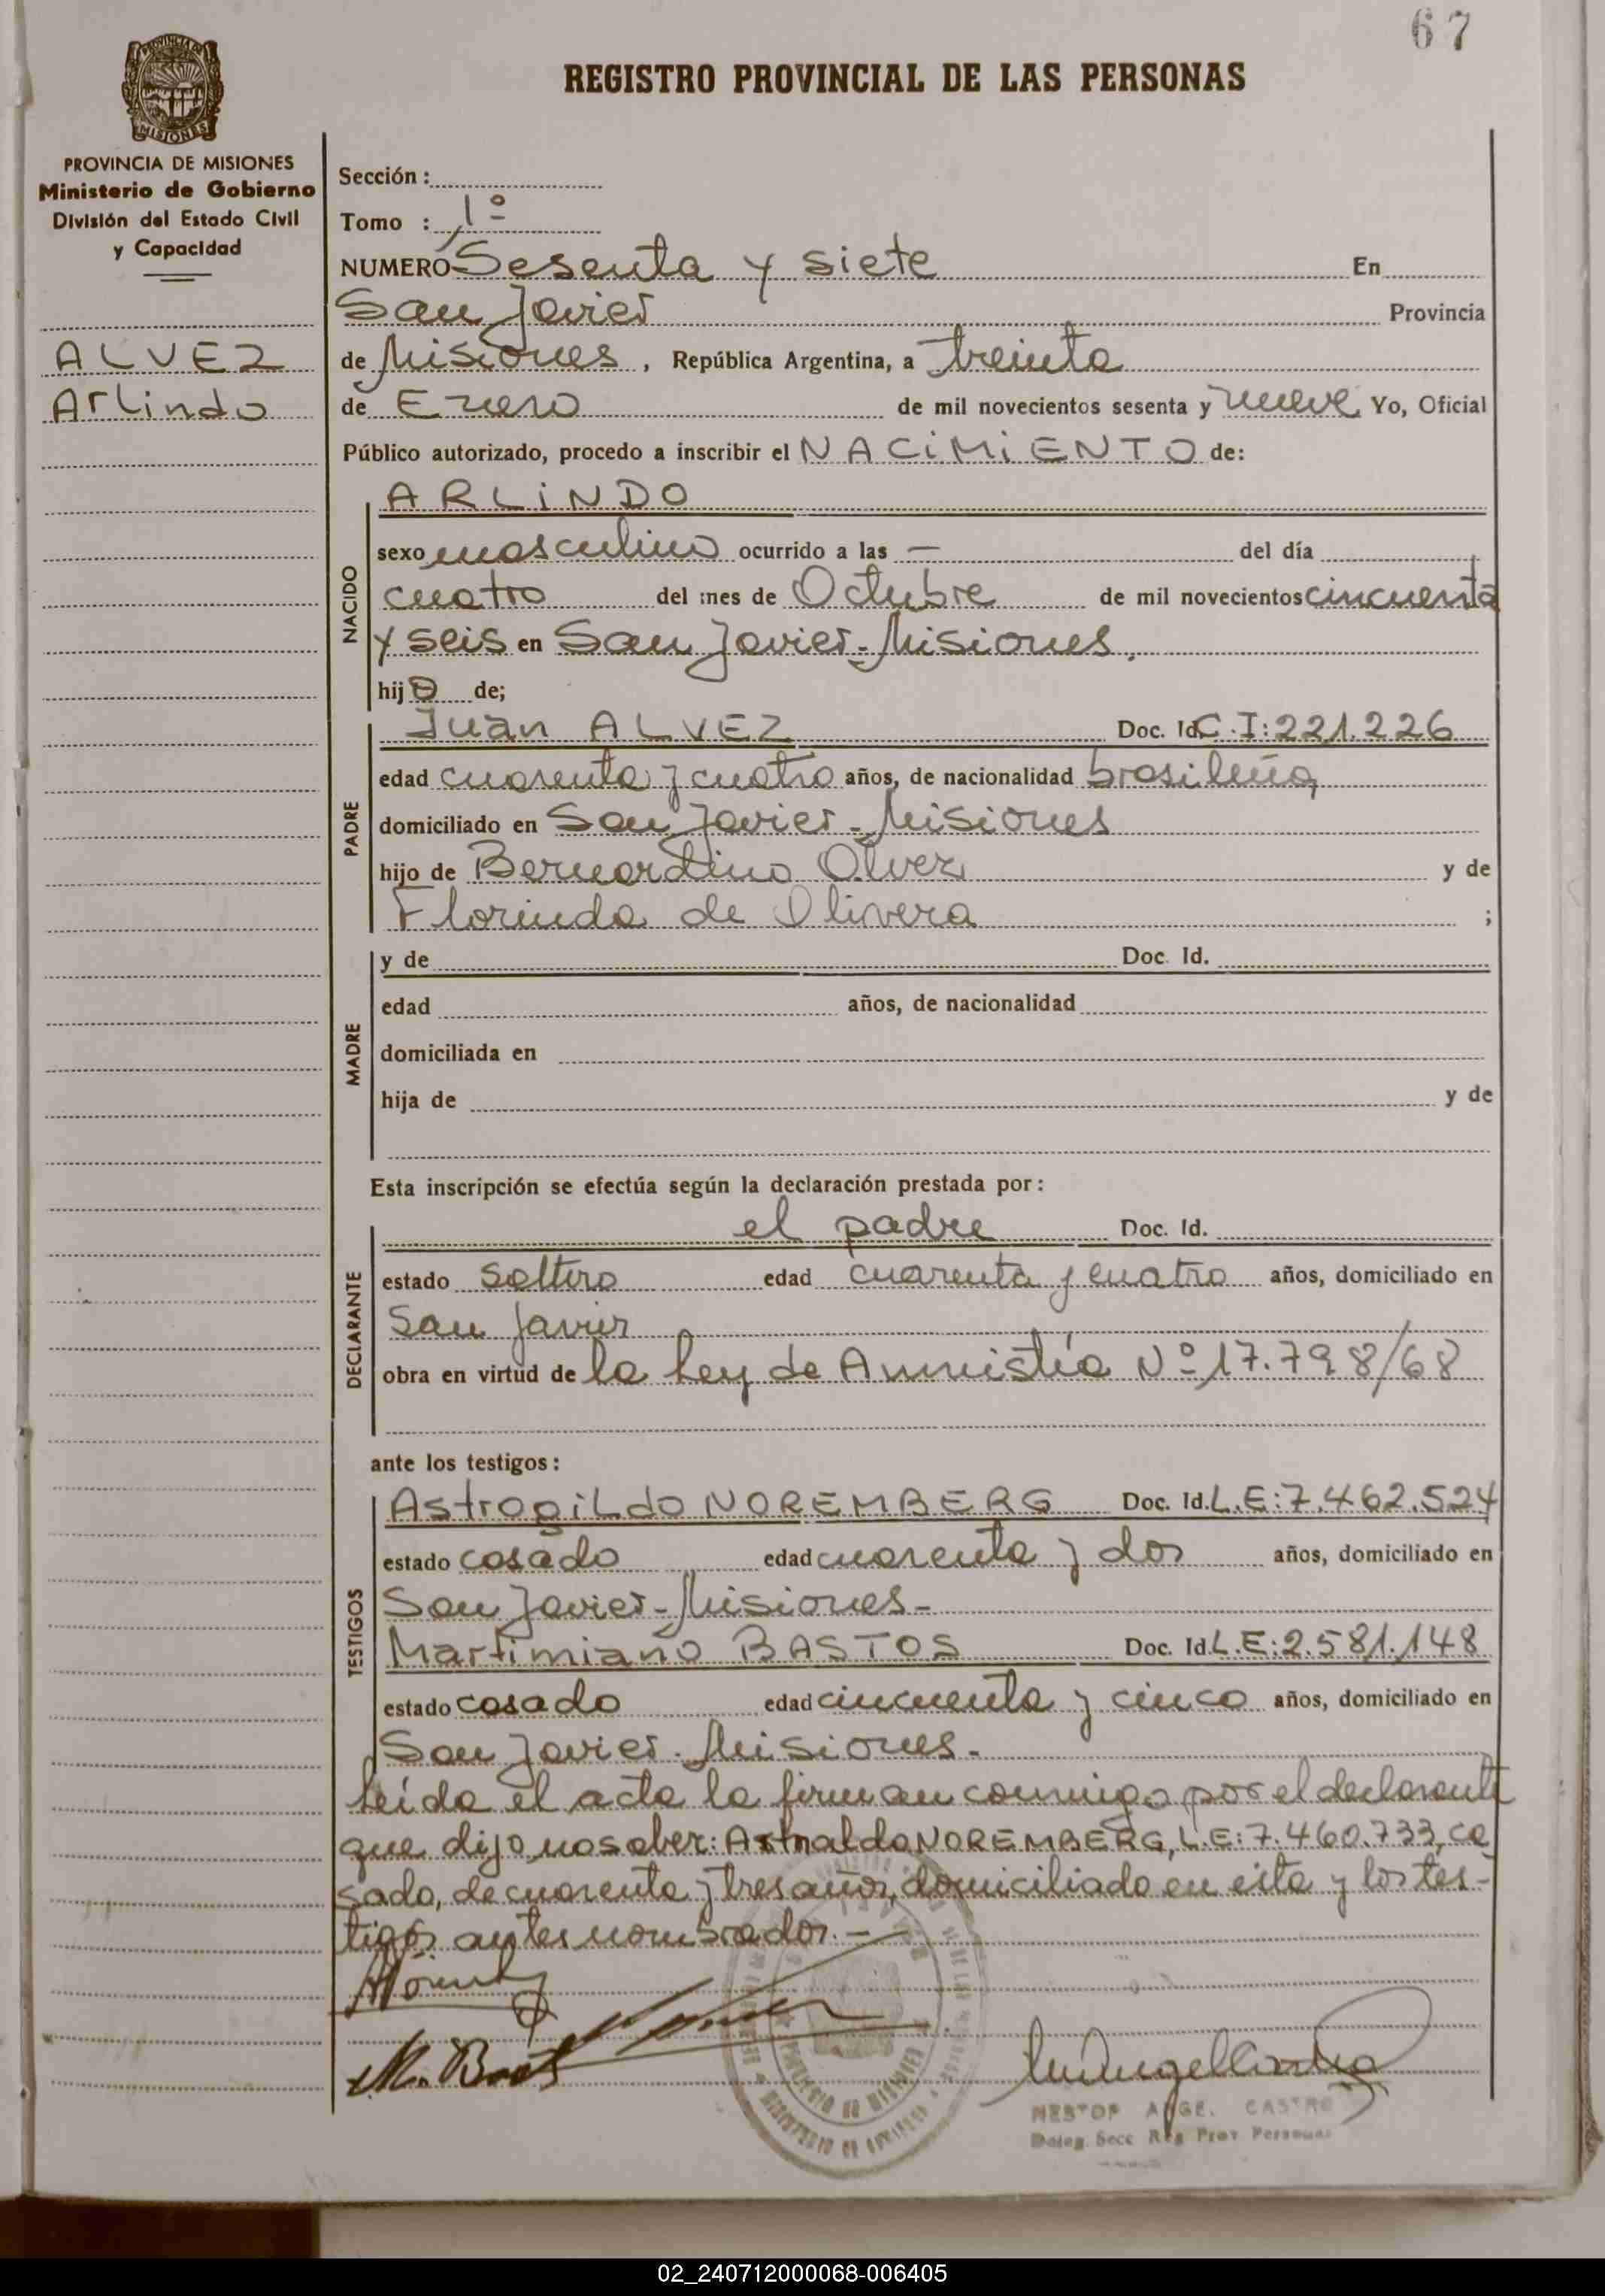 67
REGISTRO PROVINCIAL DE LAS PERSONAS
PROVINCIA DE
MISIONES
PROVINCIA DE MISIONES
Ministerio de Gobierno
División del Estado Civil
y Capacidad
ALVEZ
Arlindo
Sección :
Tomo : 1º
NUMERO Sesenta y siete En
San Javier Provincia
de Misiones, República Argentina, a treinta
de Enero de mil novecientos sesenta y nueve Yo, Oficial
Público autorizado, procedo a inscribir el NACIMIENTO de:
NACIDO
ARLINDO
sexo masculino ocurrido a las — del día
cuatro del mes de Octubre de mil novecientos cincuenta
y seis en San Javier-Misiones.
hijo de;
PADRE
Juan ALVEZ Doc. Id. C.I:221.226
edad cuarenta y cuatro años, de nacionalidad brasileña
domiciliado en San Javier-Misiones
hijo de Bernardino Olvez y de
Florinda de Olivera ;
MADRE
y de Doc. Id.
edad años, de nacionalidad
domiciliada en
hija de y de
Esta inscripción se efectúa según la declaración prestada por :
DECLARANTE
el padre Doc. Id.
estado soltero edad cuarenta y cuatro años, domiciliado en
San Javier
obra en virtud de la Ley de Amnistía Nº 17.798/68
ante los testigos :
TESTIGOS
Astrogildo NOREMBERG Doc. Id. L.E:7.462.524
estado casado edad cuarenta y dos años, domiciliado en
San Javier-Misiones-
Martimiano BASTOS Doc. Id. L.E:2.581.148
estado casado edad cincuenta y cinco años, domiciliado en
San Javier-Misiones-
Leída el acta la firman conmigo por el declarante
que dijo no saber: NOREMBERG, L.E:7.460.733, ca
sado, de cuarenta y tres años, domiciliado en esta y los tes-
tigos antes nombrados.—
M. Bast
PROVINCIA DE MISIONES
MINISTERIO DE GOBIERNO
NESTOR ANGE. CASTRO
Deleg. Secc Reg Prov Personas
02_240712000068-006405